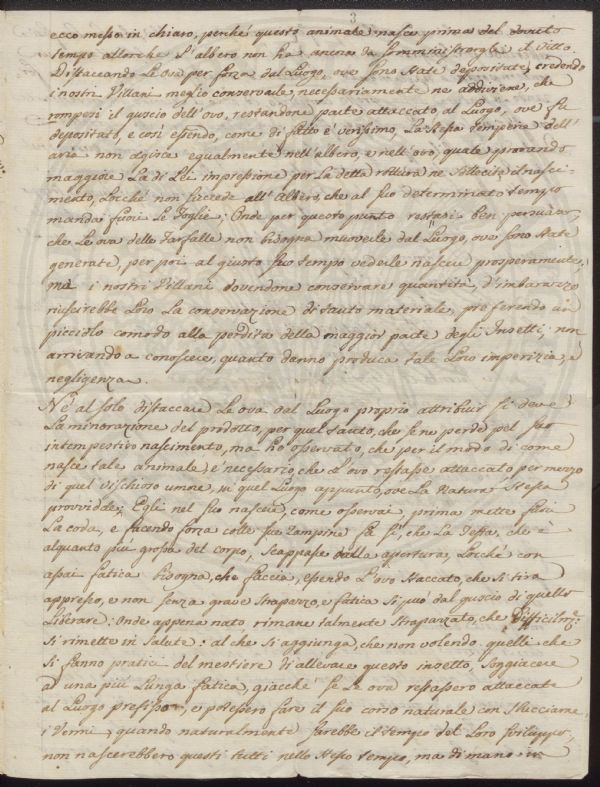 3
ecco messo in chiaro, perché questo animale nasce prima del dovuto
tempo allorche l'albero non ha ancora da somministrargli il vitto.
Distaccando Le ova per forza dal Luogo, ove sono state depositate, credendo
i nostri Villani meglio conservarle, necessariamente ne addiviene, che
rompesi il guscio dell'ovo, restandone parte attaccato al Luogo, ove fu
depositato, e così essendo, come di fatto è verissimo, La stessa temperie dell'
aria non agisce egualmente nell'albero, e nell'ovo, quale provando
maggiore La di Lei impressione per La detta rottura ne sollecita il nasci-
mento, Locché non succede all'Albero, che al suo determinato tempo
manda fuori Le foglie; Onde per questo punto restasi ben persuaso,
che Le ova delle farfalle non bisogna muoverle dal Luogo, ove sono state
generate, per poi al giusto suo tempo vederle nascere prosperamente,
ma i nostri Villani dovendone conservare quantità, d'imbarazzo
riuscirebbe Loro La conservazione di tanto materiale, preferendo un
picciolo comodo alla perdita della maggior parte degli Insetti, non
arrivando a conoscere, quanto danno produca tale Loro imperizia, e
negligenza.
Nè al solo distaccare Le ova dal Luogo proprio attribuir si deve
La minorazione del prodotto, per quel tanto, che se ne perde pel suo
intempestivo nascimento, ma ho osservato, che per il modo di come
nasce tale animale, è necessario, che L'ovo restasse attaccato per mezzo
di quel vischioso umore, in quel Luogo appunto, ove La Natura stessa
provvidde; Egli nel suo nascere, come osservai, prima mette fuori
La coda, e facendo forza colle sue zampine fa sì, che La Testa, che è
alquanto più grossa del corpo, scappasse dalla apertura, Locché con
assai fatica bisogna, che faccia, essendo L'ovo staccato, che si tira
appresso, e non senza grave strapazzo, e fatica si può dal guscio di quello
Liberare: Onde appena nato rimane talmente strapazzato, che difficilm.e
si rimette in salute: al che si aggiunga, che non volendo quelli che
si fanno pratici del mestiere di allevare questo insetto, soggiacere
ad una più Lunga fatica, giacché se Le ova restassero attaccate
al Luogo prefisso, e potessero fare il suo corso naturale con sbucciarne
i Vermi, quando naturalmente sarebbe il tempo del Loro sviluppo,
non nascerebbero questi tutti nello stesso tempo, ma di mano in